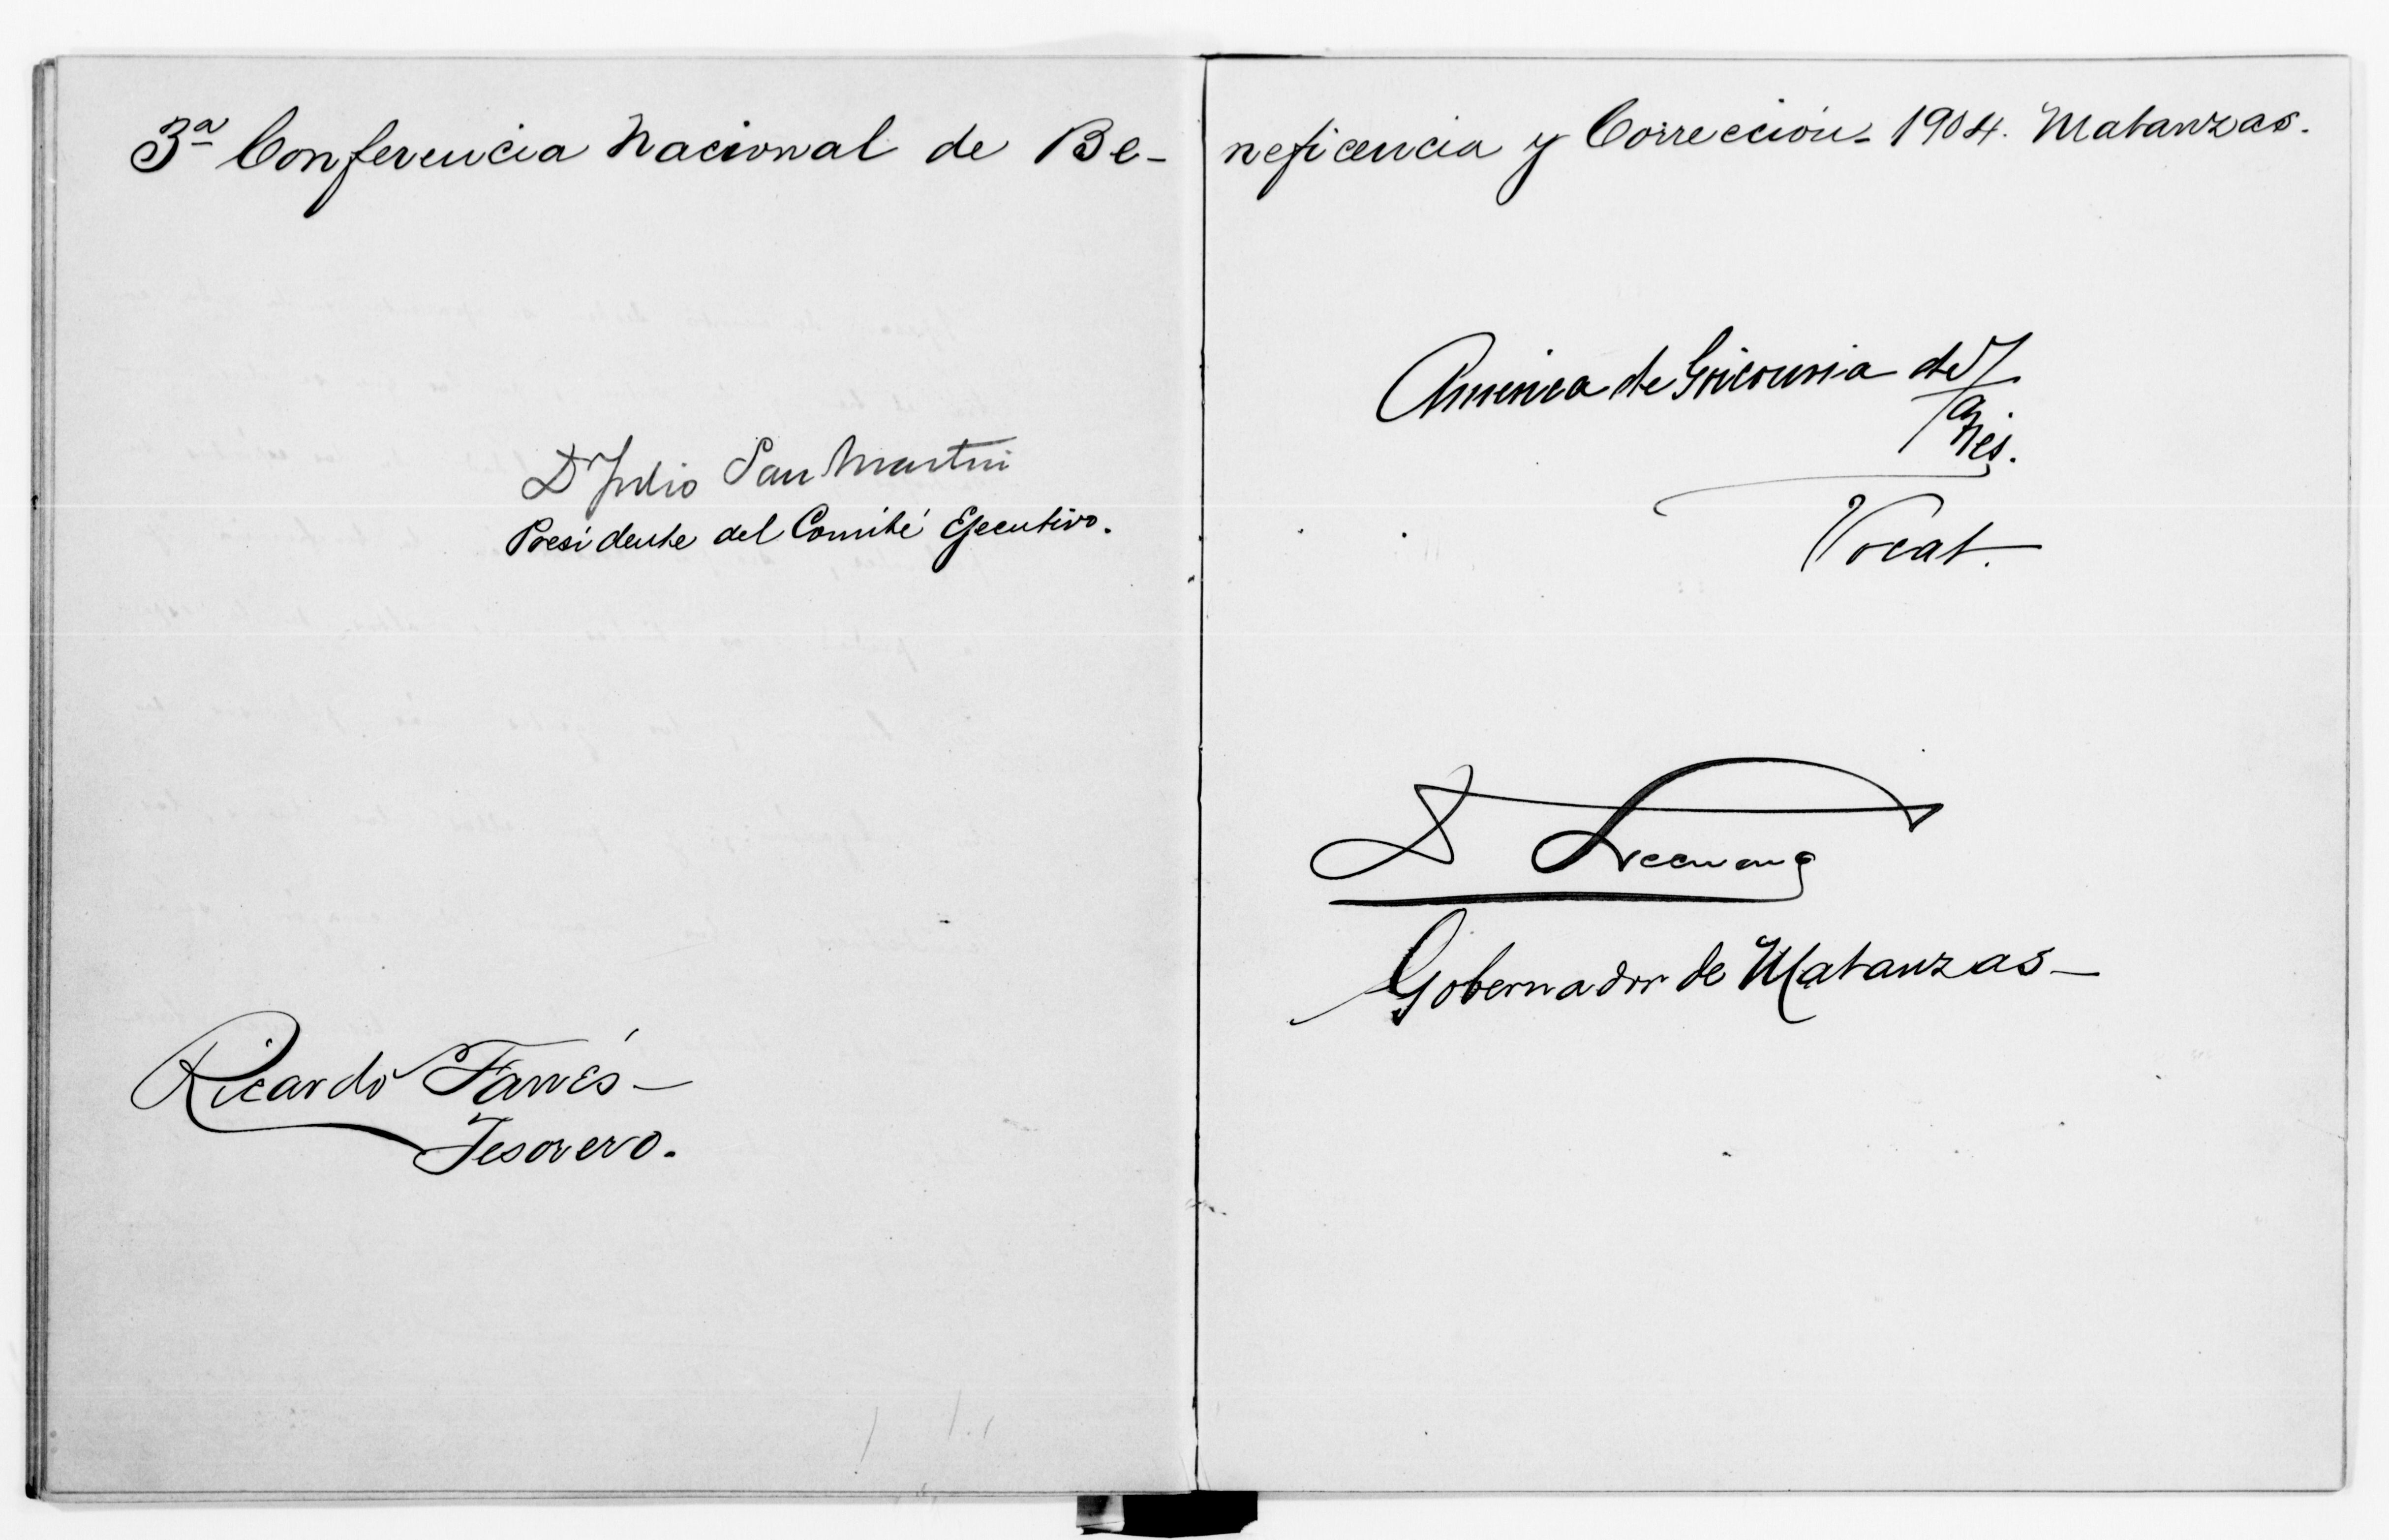 3ª Conferencia Nacional de Be-
neficencia y Corrección - 1904. Matanzas.
Dr Julio San Martin
Presidente del Comité Ejecutivo.
Ricardo
Tesorero.
America de Goicouria de
Vocal.
D
Gobernador de Matanzas -